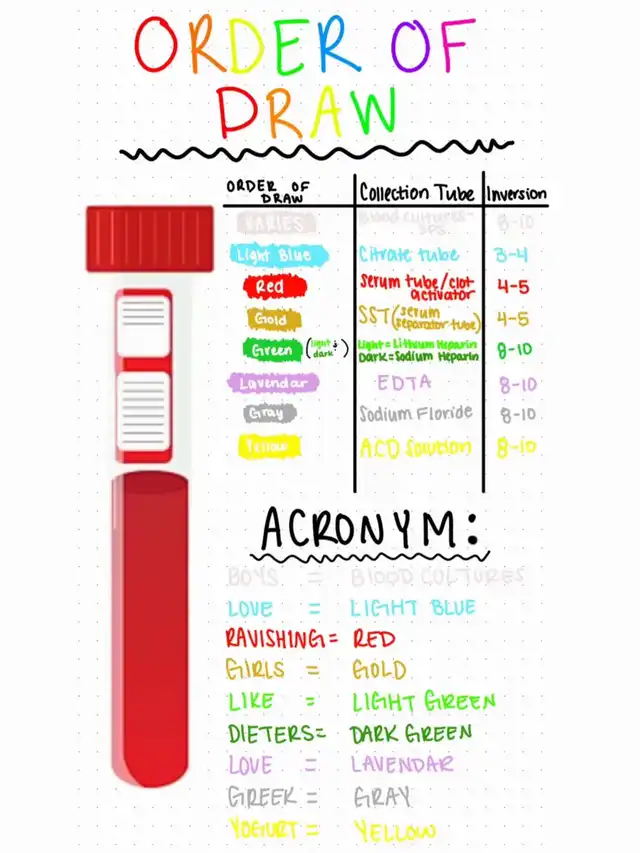 ORDER OF
DRAW
ORDER OF DRAW Collection Tube Inversion
VARIES Blood cultures- SPS 8-10
Light Blue Citrate tube 3-4
Red Serum tube/clot activator 4-5
Gold SST (serum separator tube) 4-5
Green (light & dark) Light=Lithium Heparin Dark=Sodium Heparin 8-10
Lavendar EDTA 8-10
Gray Sodium Floride 8-10
Yellow ACD Solution 8-10
ACRONYM:
BOYS = BLOOD CULTURES
LOVE = LIGHT BLUE
RAVISHING = RED
GIRLS = GOLD
LIKE = LIGHT GREEN
DIETERS = DARK GREEN
LOVE = LAVENDAR
GREEK = GRAY
YOGURT = YELLOW